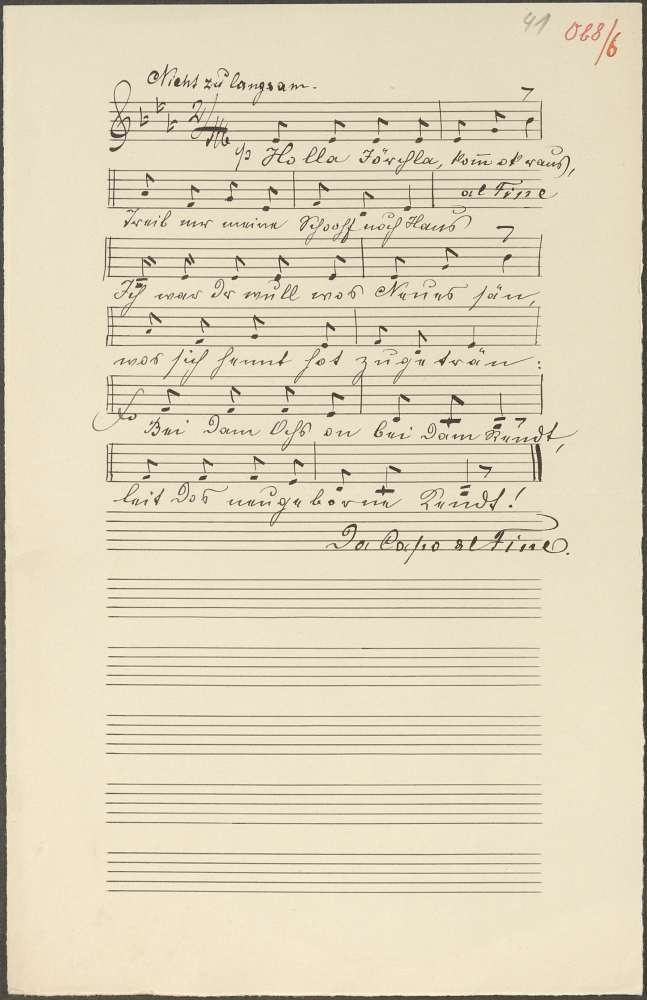 41 Ob8/6
Nicht zu langsam.
p Holla Jörchla, kom̅ ok raus,
al Fine
Treib mr meine Schoof noch Haus
Ich war Dr wull wos Neues sän,
wos sich heunt hot zugeträn:
Bei Dam Ochs on bei Dam Rendt,
leit Dos neugeborne Kendt!
Da Capo al Fine.